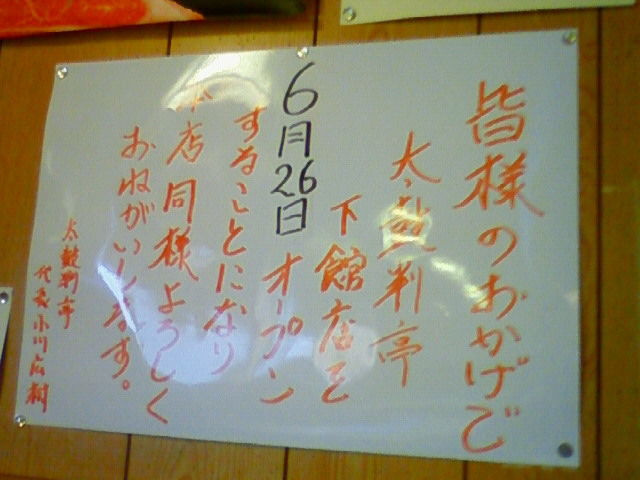 皆様のおかげで
太鼓判亭
下館店を
6月26日オープン
することになり
本店同様よろしく
おねがいします。
太鼓判亭
代表小川広樹